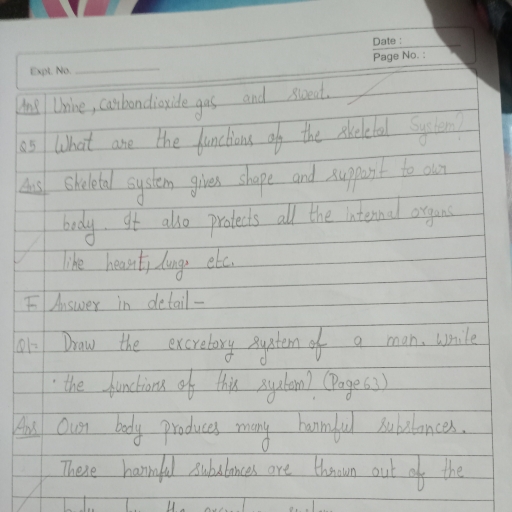 Date :
Page No. :
Expt. No.
Ans Urine, carbondioxide gas and sweat.
Q5 What are the functions of the skeletal System?
Ans Skeletal system gives shape and support to our
body. It also protects all the internal organs
like heart, lungs etc.
F Answer in detail -
Q1- Draw the excretory system of a man. Write
the functions of this system? (Page 63)
Ans Our body produces many harmful substances.
These harmful substances are thrown out of the
body by the